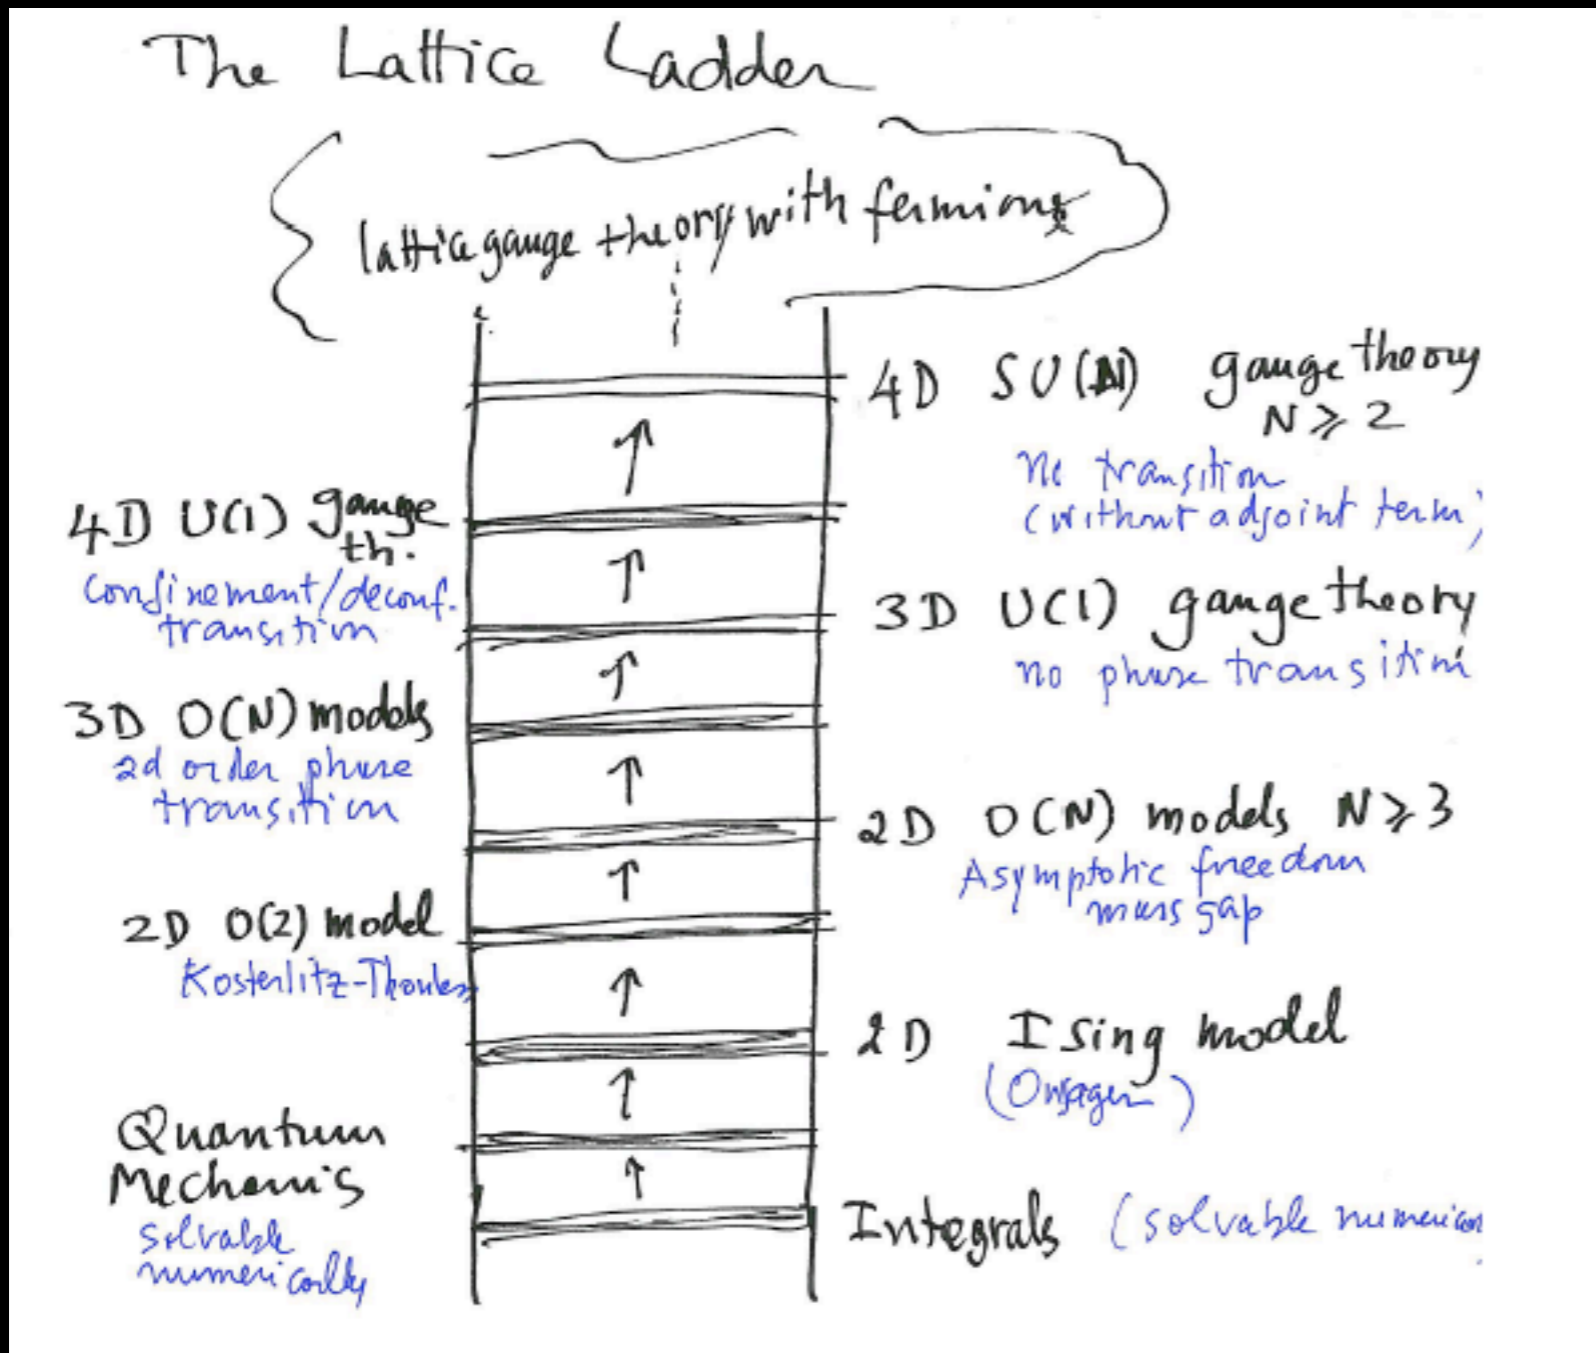 The Lattice Ladder
lattice gauge theory with fermions
4D SU(N) gauge theory
N ⩾ 2
no transition
(without adjoint term)
4D U(1) gauge
th.
confinement/deconf.
transition
3D U(1) gauge theory
no phase transition
3D O(N) models
2d order phase
transition
2D O(N) models N ⩾ 3
Asymptotic freedom
mass gap
2D O(2) model
Kosterlitz-Thouless
2D Ising model
(Onsager)
Quantum
Mechanics
solvable
numerically
Integrals (solvable numerica